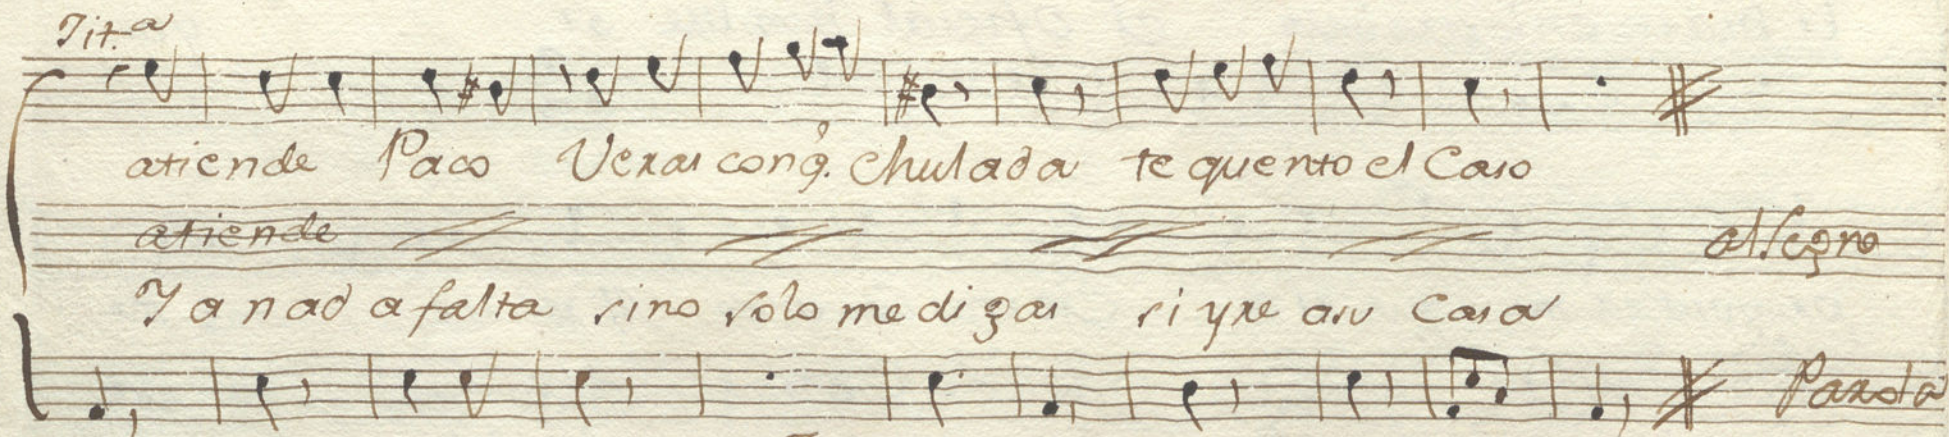 Tit.ª
atiende Paco Veras con q.º chulada te quento el Caso
atiende al Segno
Ya nada falta sino solo me digas si yre a su Casa
Parola